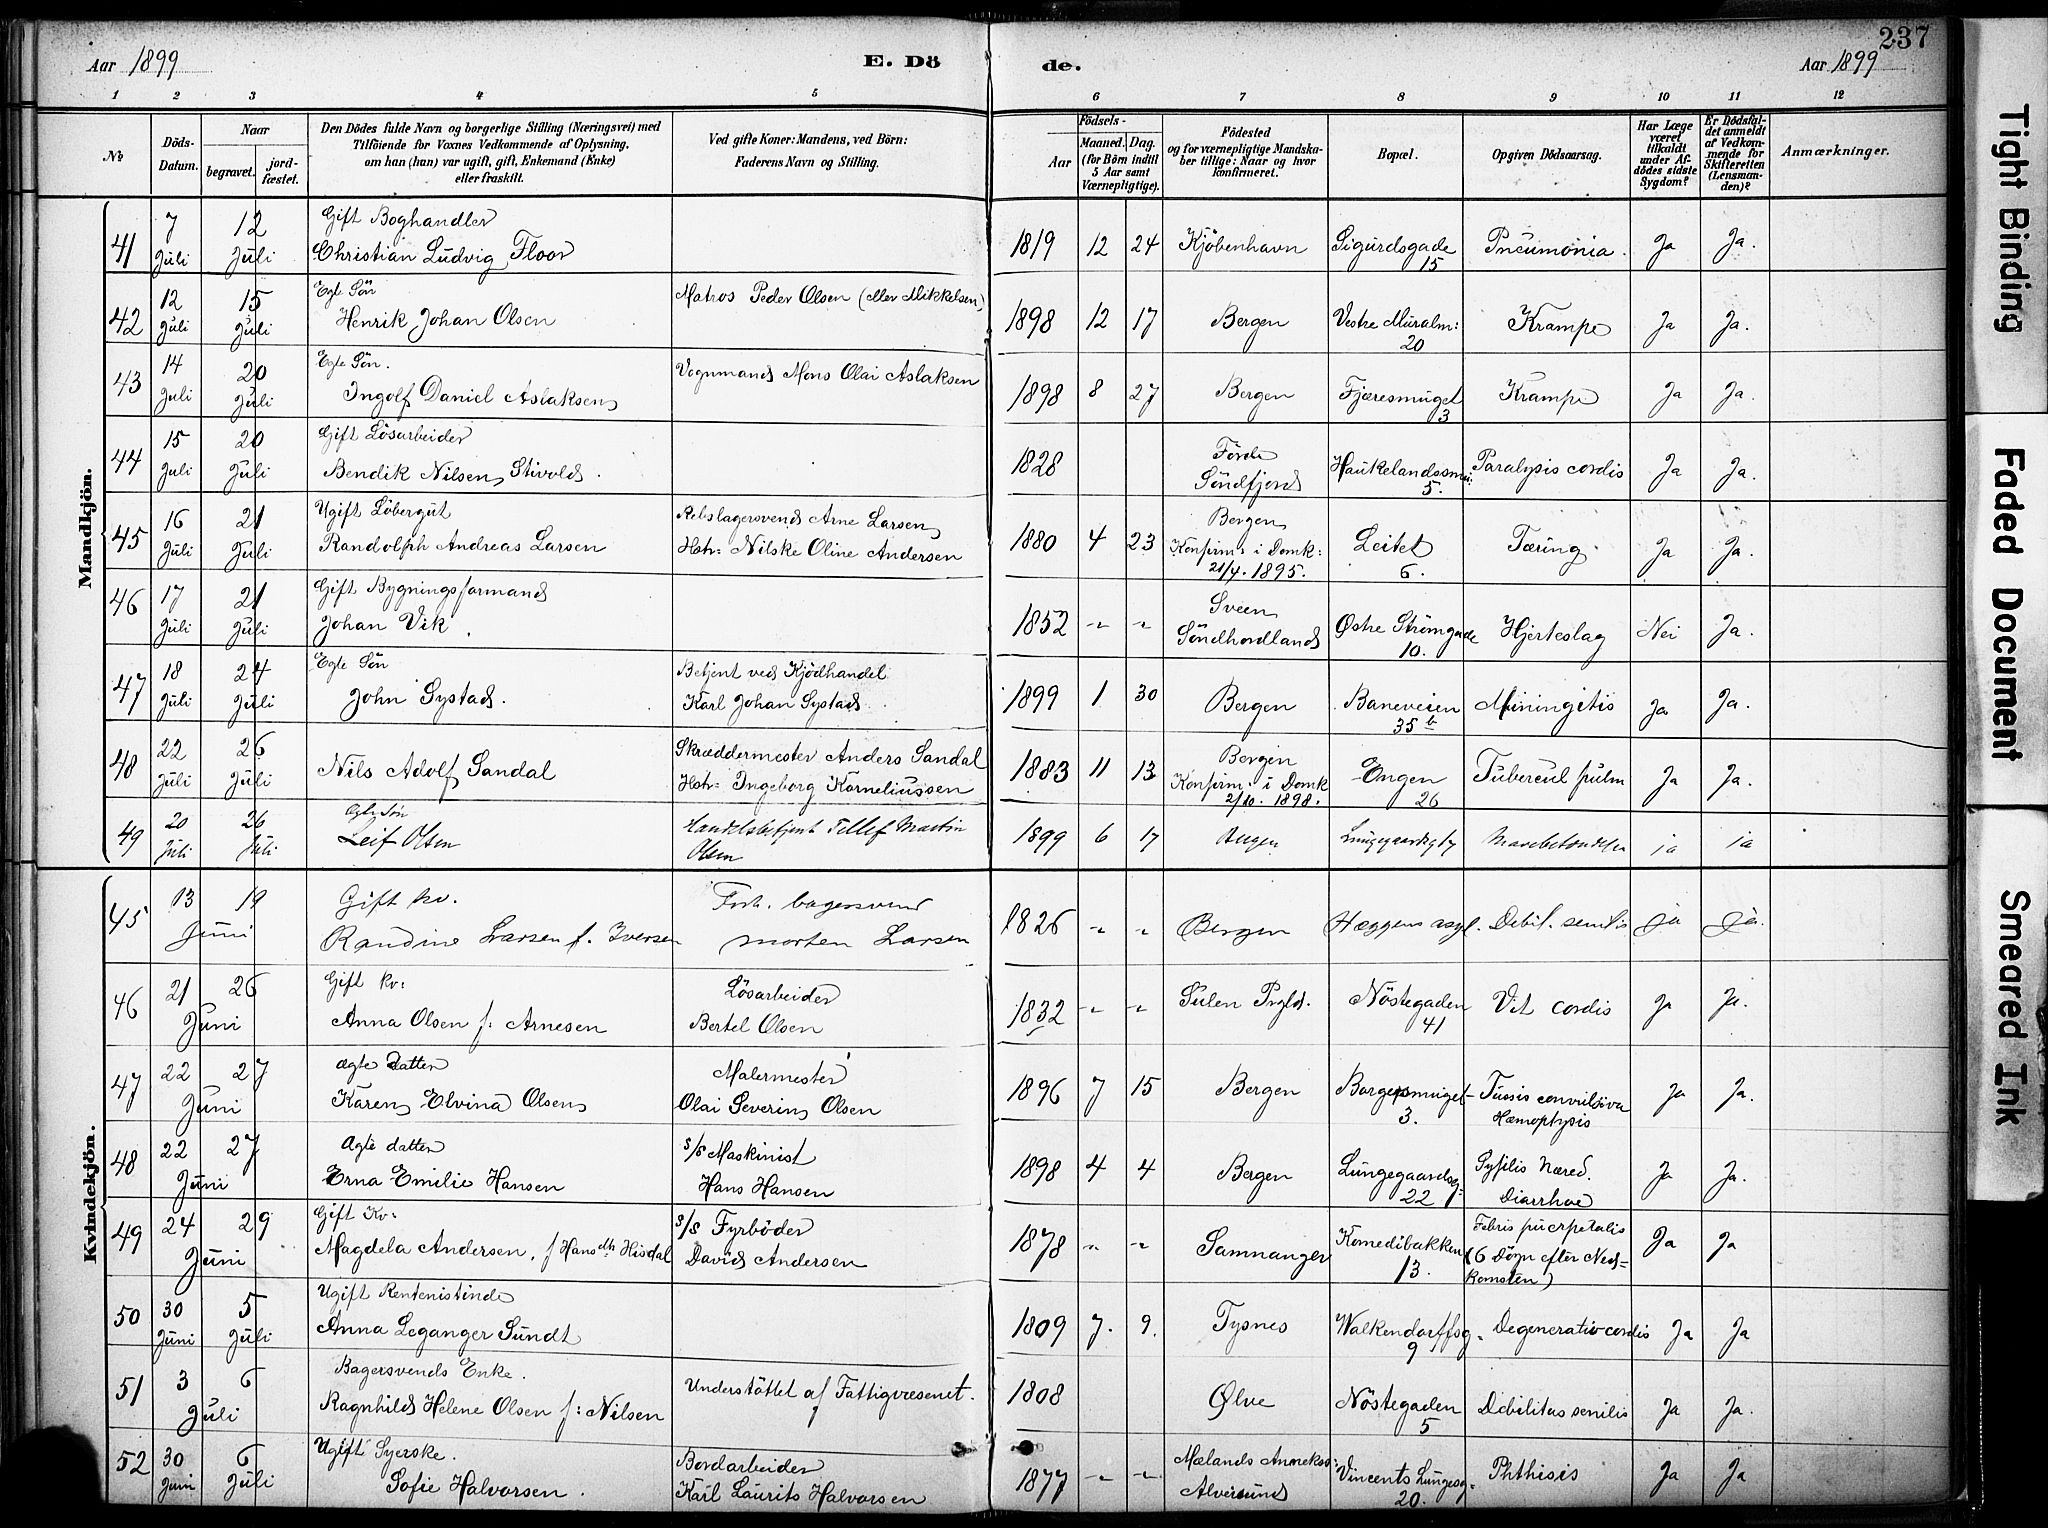 237
Aar 1899 E. Dö de. Aar 1899
1 2 3 4 5 6 7 8 9 10 11 12
No
Döds-Datum.
Naar
begravet.
jord-fæstet.
Den Dödes fulde Navn og borgerlige Stilling (Næringsvei) med
Tilföiende for Voxnes Vedkommende af Oplysning,
om han (hun) var ugift, gift, Enkemand (Enke)
eller fraskilt.
Ved gifte Koner: Mandens, ved Börn:
Faderens Navn og Stilling.
Födsels-
Aar
Maaned. Dag.
(for Börn indtil
5 Aar samt
Værnepligtige).
Födested
og for værnepligtige Mandska-
ber tillige: Naar og hvor
konfirmeret.
Bopæl.
Opgiven Dödsaarsag.
Har Læge
været
tilkaldt
under Af-
dödes sidste
Sygdom?
Er Dödsfal-
det anmeldt
af Vedkom-
mende for
Skifteretten
(Lensman-
den)?
Anmærkninger.
Mandkjön.
41 7 Juli 12 Juli Gift Boghandler
Christian Ludvig Floor 1819 12 24 Kjöbenhavn Sigurdsgade 15 Pneumonia. Ja Ja.
42 12 Juli 15 Juli Egte Sön
Henrik Johan Olsen Matros Peder Olsen (eller Mikkelsen) 1898 12 17 Bergen Vestre Muralm: 20 Krampe Ja Ja.
43 14 Juli 20 Juli Egte Sön.
Ingolf Daniel Aslaksen Vognmand Mons Olai Aslaksen 1898 8 27 Bergen Fjæresmuget 3 Krampe Ja Ja.
44 15 Juli 20 Juli Gift Lösarbeider
Bendik Nilsen Stivold. 1828 Förde Söndfjord Haukelandssmu: 5. Paralysis cordis Ja Ja.
45 16 Juli 21 Juli Ugift Löbergut
Randolph Andreas Larsen Rebslagersvend Arne Larsen
Hstr: Nilske Oline Andersen 1880 4 23 Bergen
Konfirm: i Domk:
21/4. 1895. Leitet 6. Tæring. Ja Ja.
46 17 Juli 21 Juli Gift Bygningsformand
Johan Vik. 1852 " " Sveen
Söndhordland Østre Strömgade 10. Hjerteslag Nei Ja.
47 18 Juli 24 Juli Egte Sön
John Systad. Betjent ved Kjödhandel
Karl Johan Systad. 1899 1 30 Bergen Baneveien 35 b Miningitis Ja Ja.
48 22 Juli 26 Juli Nils Adolf Sandal Skræddermester Anders Sandal
Hstr: Ingeborg Korneliussen 1883 11 13 Bergen
Konfirm: i Domk
2/10. 1898. Engen 26 Tubercul pulm Ja Ja.
49 20 Juli 26 Juli Ægte Søn
Leif Olsen Handelsbetjent Tellef Martin
Olsen 1899 6 17 Bergen Mavebetændelse ja ja
Kvindekjön.
45 13 19 Juni Gift kv.
Randine Larsen f. Iversen Forh. bagersvend
Morten Larsen 1826 " " Bergen Hæggens asyl. Debil. senilis ja ja.
46 21 26 Juni Gift kv:
Anna Olsen f: Arnesen Lösarbeider
Bertel Olsen 1832 " " Sulen Prgld. Nöstegaden 41 Vit cordis Ja Ja.
47 22 27 Juni ægte Datter
Karen Elvina Olsen Malermester
Olai Severin Olsen 1896 7 15 Bergen Borgersmuget 3. Tussis convulsiva
Hæmoptysis Ja Ja.
48 22 27 Juni Agte datter
Erna Emilie Hansen s/s Maskinist
Hans Hansen 1898 4 4 Bergen Lungegaardsg: 22 Syfilis Næred.
Diarrhoe Ja Ja.
49 24 29 Juni Gift Kv:
Magdela Andersen, f Hans dtr Hisdal s/s Fyrböder
David Andersen 1878 " " Samnanger Komedibakken 13. Febris puerperalis
(6 Dögn efter Ned=
komsten) Ja Ja
50 30 Juni 5 Juli Ugift Rentenistinde
Anna Leganger Sundt 1809 7. 9. Tysnes Walkendorffsg. 9 Degeneratio cordis Ja Ja
51 3 6 Juli Bagersvends Enke.
Ragnhild Helene Olsen f: Nilsen Understöttet af Fattigvæsenet. 1808 Ølve Nöstegaden 5 Debilitas senilis Ja Ja.
52 30 Juni 6 Juli Ugift Syerske.
Sofie Halvorsen. Bordarbeider
Karl Laurits Halvorsen 1877 " " Mælands Annekss:
Alversund Vincents Lungesg: 20. Phthisis Ja Ja
Tight Binding
Faded Document
Smeared Ink